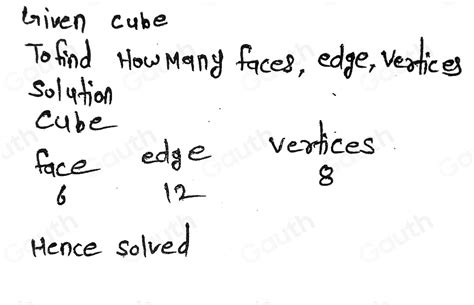 Given cube
To find How Many faces, edge, Vertices
Solution
Cube
face edge vertices
6 12 8
Hence solved